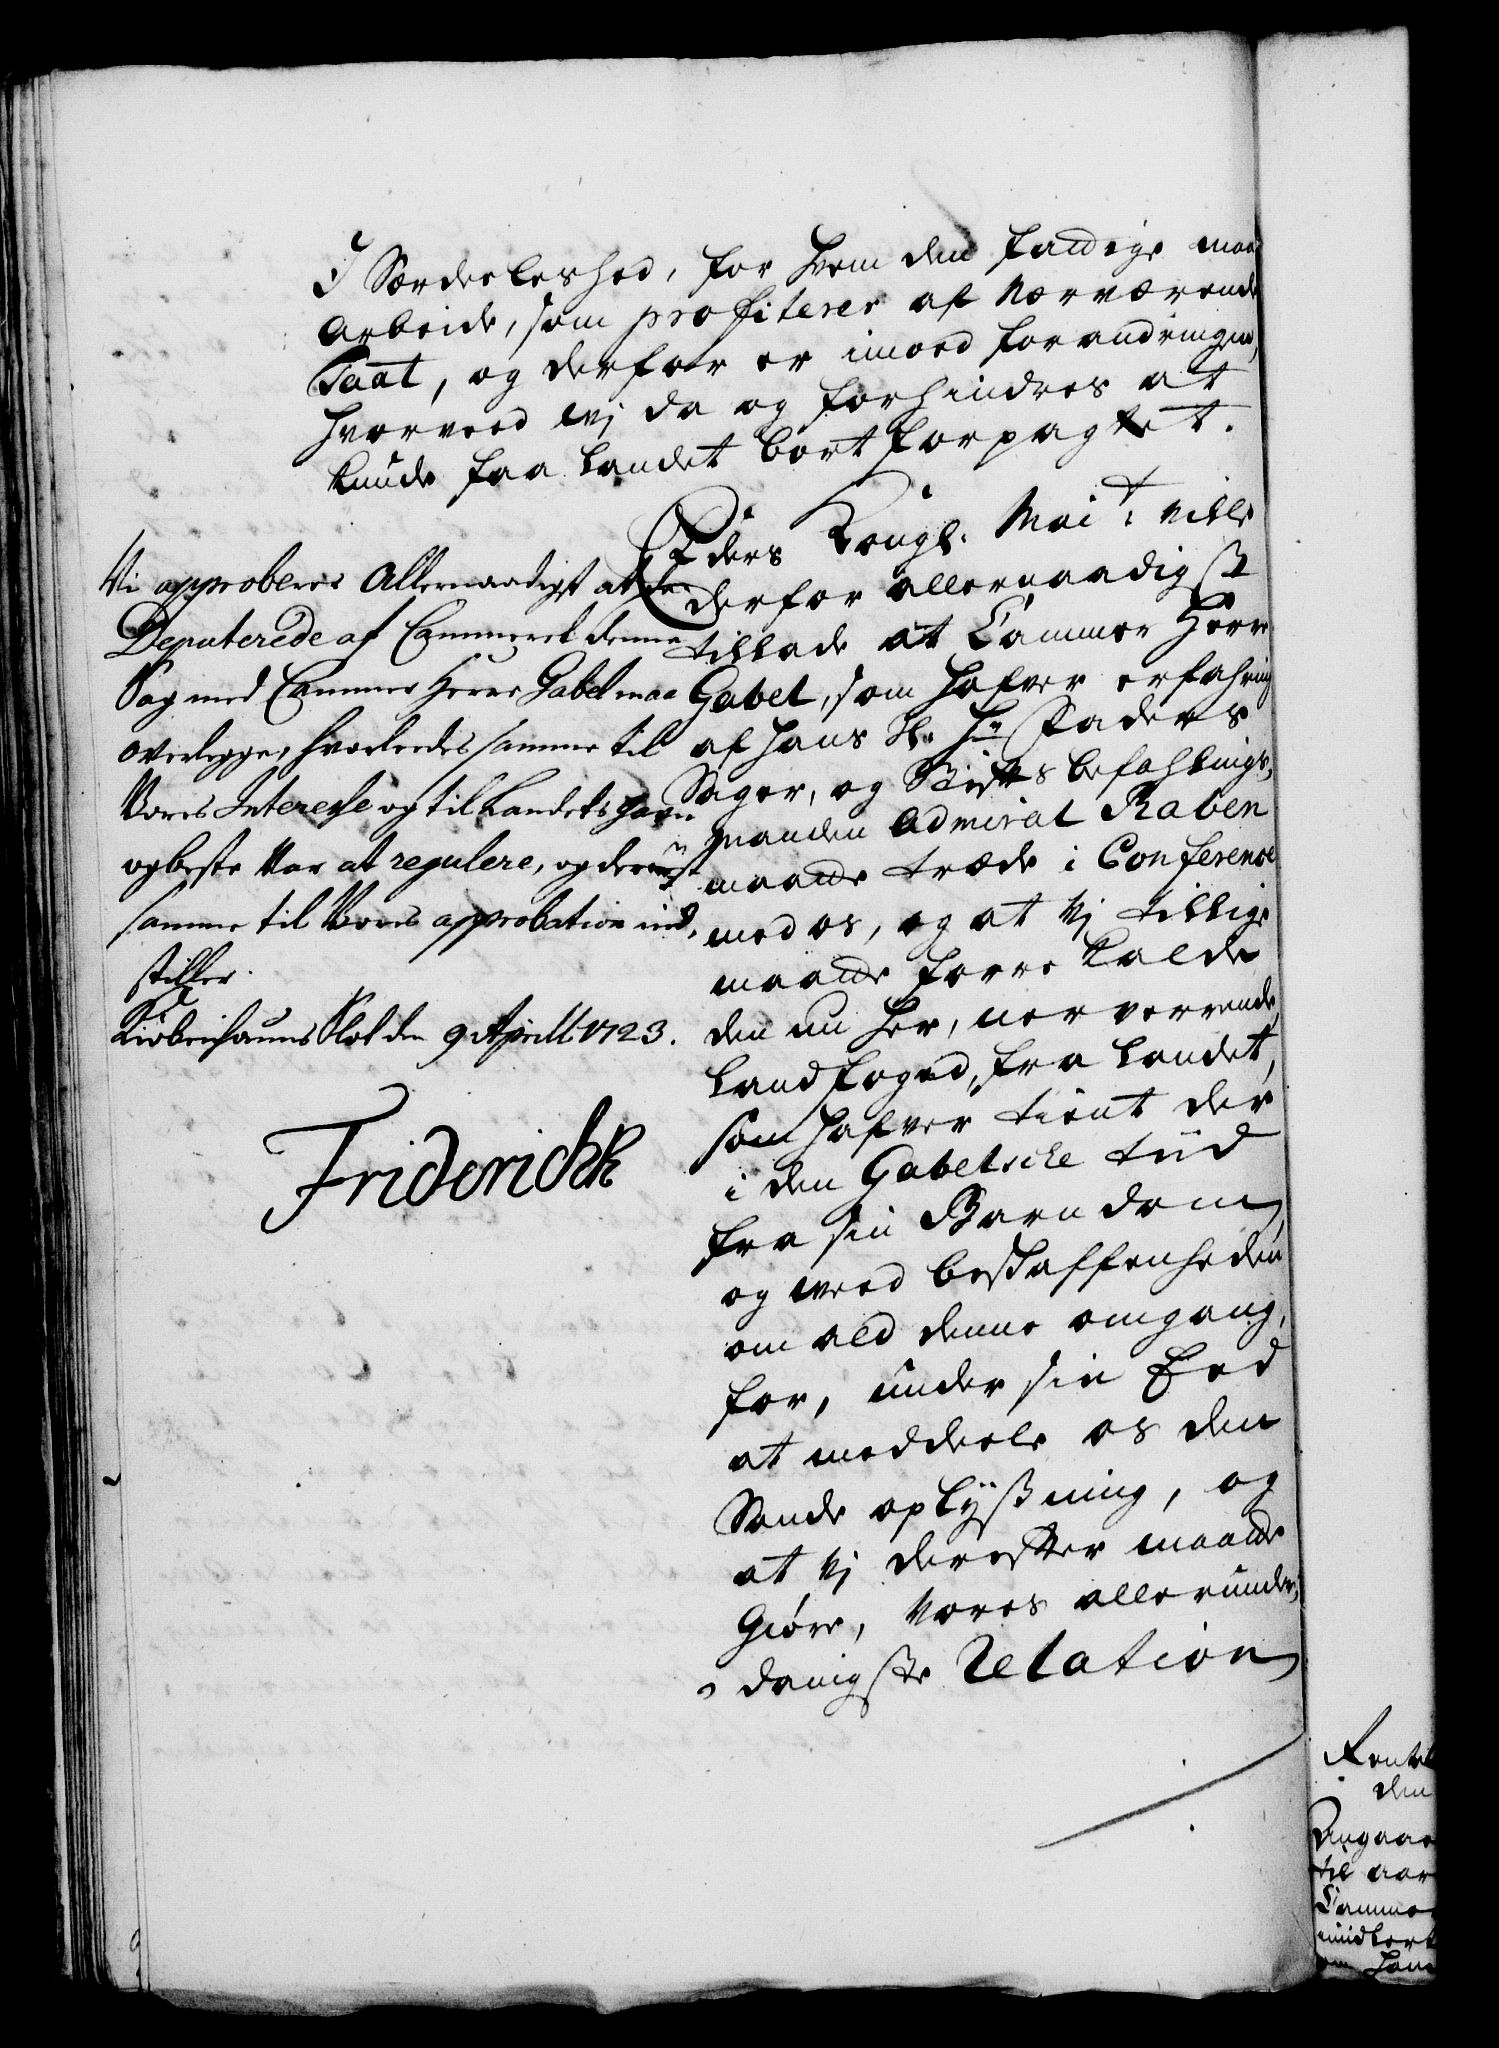 I Særdeeleshed, for hvem den fandige maa
Arbeide, som profiterer af Nærværende
Taat, og derfor er imoed forandringen,
hvorveed vi da og forhindres at
kunde faa Landet bortforpagtet.
Eders Kongl. Mai.t: ville
derfor allernaadigst
tillade at Cammer Herre
Gabel, som hafver erfahring
af hans Sl. Hr. Faders
Sager, og Stiftsbefahlings,
manden Admiral Raben
maatte træde i Conference
med os, og at vj tillige
maatte forre kalde
den nu her, nerverrende
Landfoged, fra Landet,
som hafver tient der
i den Gabelsche tiid
fra sin Barndom,
og veed beskaffenheden
om ald denne omgang,
for, under sin Eed
at meddeele os den
Sande oplysning, og
at vj derefter maatte
Giøre, vores allerunder,
danigste Relation
Vi approberer Allernaadigst at de
Deputerede af Cammeret denne
Sag med Cammer Herre Gabel maa
overlegge, hvorledes samme til
Vores Interesse og til Landets Gavn
og beste var at regulere, og dernest
samme til Vores approbation ind,
stiller.
Kiøbenhauns Slot den 9 Aprill 1723.
Friderich R
den
Angaae
til aar
Camme